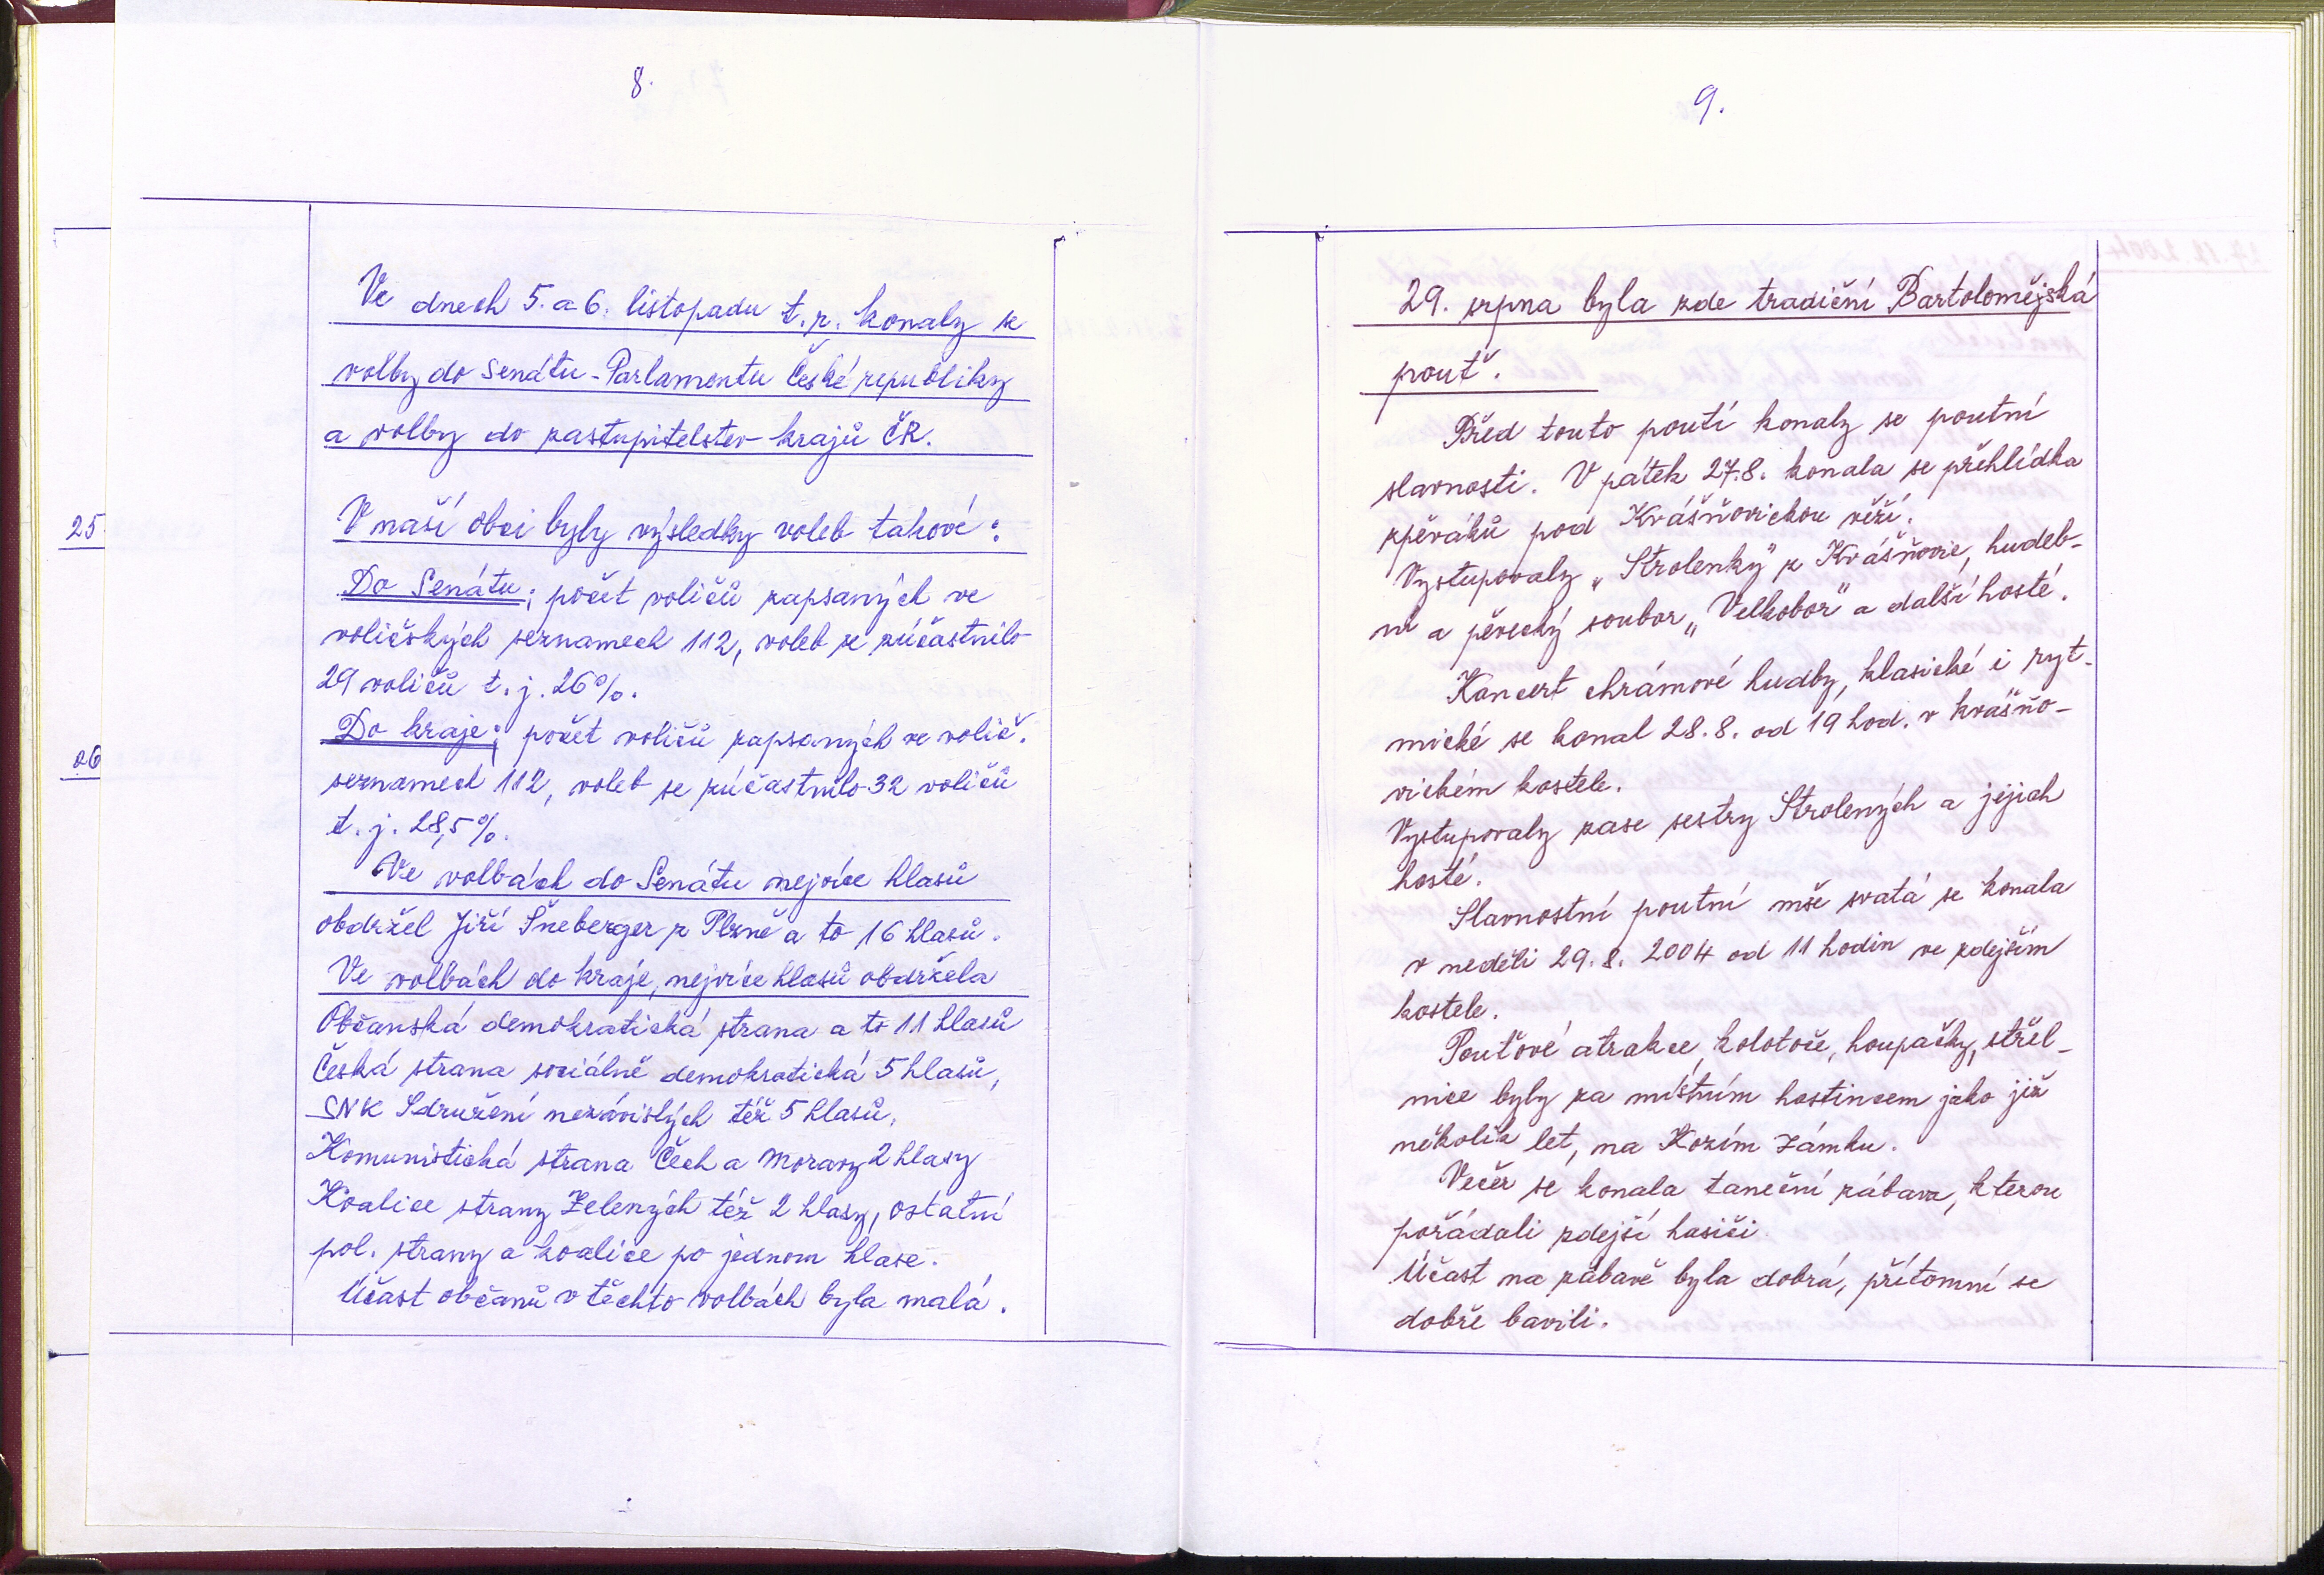 8.
Ve dnech 5. a 6. listopadu t.r. konaly se
volby do Senátu - Parlamentu České republiky
a volby do zastupitelstev krajů ČR.
25
V naší obci byly výsledky voleb takové:
Do Senátu; počet voličů zapsaných ve
voličských seznamech 112, voleb se zúčastnilo
29 voličů t. j. 26%.
Do kraje; počet voličů zapsaných ve volič.
26
seznamech 112, voleb se zúčastnilo 32 voličů
t. j. 28,5%.
Ve volbách do Senátu nejvíce hlasů
obdržel Jiří Šneberger z Plzně a to 16 hlasů.
Ve volbách do kraje, nejvíce hlasů obdržela
Občanská demokratická strana a to 11 hlasů
Česká strana sociálně demokratická 5 hlasů,
SNK Sdružení nezávislých též 5 hlasů,
Komunistická strana Čech a Moravy 2 hlasy
Koalice strany Zelených též 2 hlasy, ostatní
pol. strany a koalice po jednom hlase.
Účast občanů v těchto volbách byla malá.
9.
29. srpna byla zde tradiční Bartolomějská
pouť.
Před touto poutí konaly se poutní
slavnosti. V pátek 27.8. konala se přehlídka
zpěváků pod Krášňovickou věží.
Vystupovaly „Strolenky" z Krášňovic, hudeb-
ní a pěvecký soubor „Velkobor" a další hosté.
Koncert chrámové hudby, klasické i ryt-
mické se konal 28.8. od 19 hod. v krášňo-
vickém kostele.
Vystupovaly zase sestry Strolených a jejich
hosté.
Slavnostní poutní mše svatá se konala
v neděli 29.8. 2004 od 11 hodin ve zdejším
kostele.
Pouťové atrakce, kolotoče, houpačky, střel-
nice byly za místním hostincem jako již
několik let, na Kozím zámku.
Večer se konala taneční zábava, kterou
pořádali zdejší hasiči.
Účast na zábavě byla dobrá, přítomní se
dobře bavili.